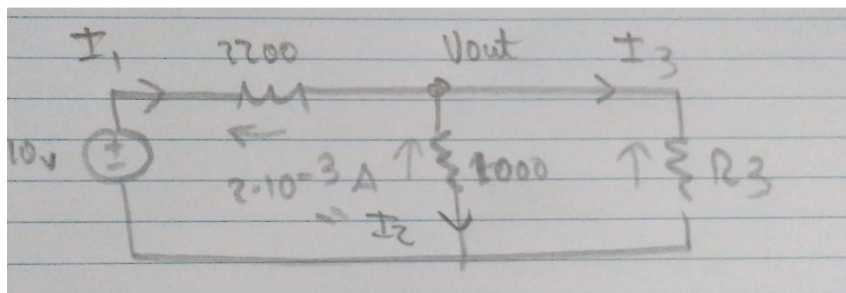 I1 2200 Vout I3
10v ± 2·10-3 A 1000 R3
= I2